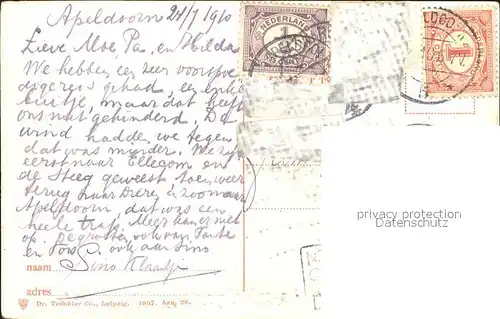 Apeldoorn 24/7 1910
Lieve Moe Pa, en Hilda
We hebben een zeer voorspoe
dige reis gehad, een enkel
buitje, maar dat heeft
ons niet gehinderd. De
wind hadden we tegen
dat was minder. We zijn
eerst naar Ellecom en
de Steeg geweest toen weer
terug naar Dieren zoo naar
Apeldoorn, dat was een
heele trap. Meer kan er niet
op. De groeten ook van Tante
en ook aan Sino
naam
adres
Dr. Trenkler Co., Leipzig. 1907. Arn. 28.
NEDERLAND
1
1
privacy protection
Datenschutz